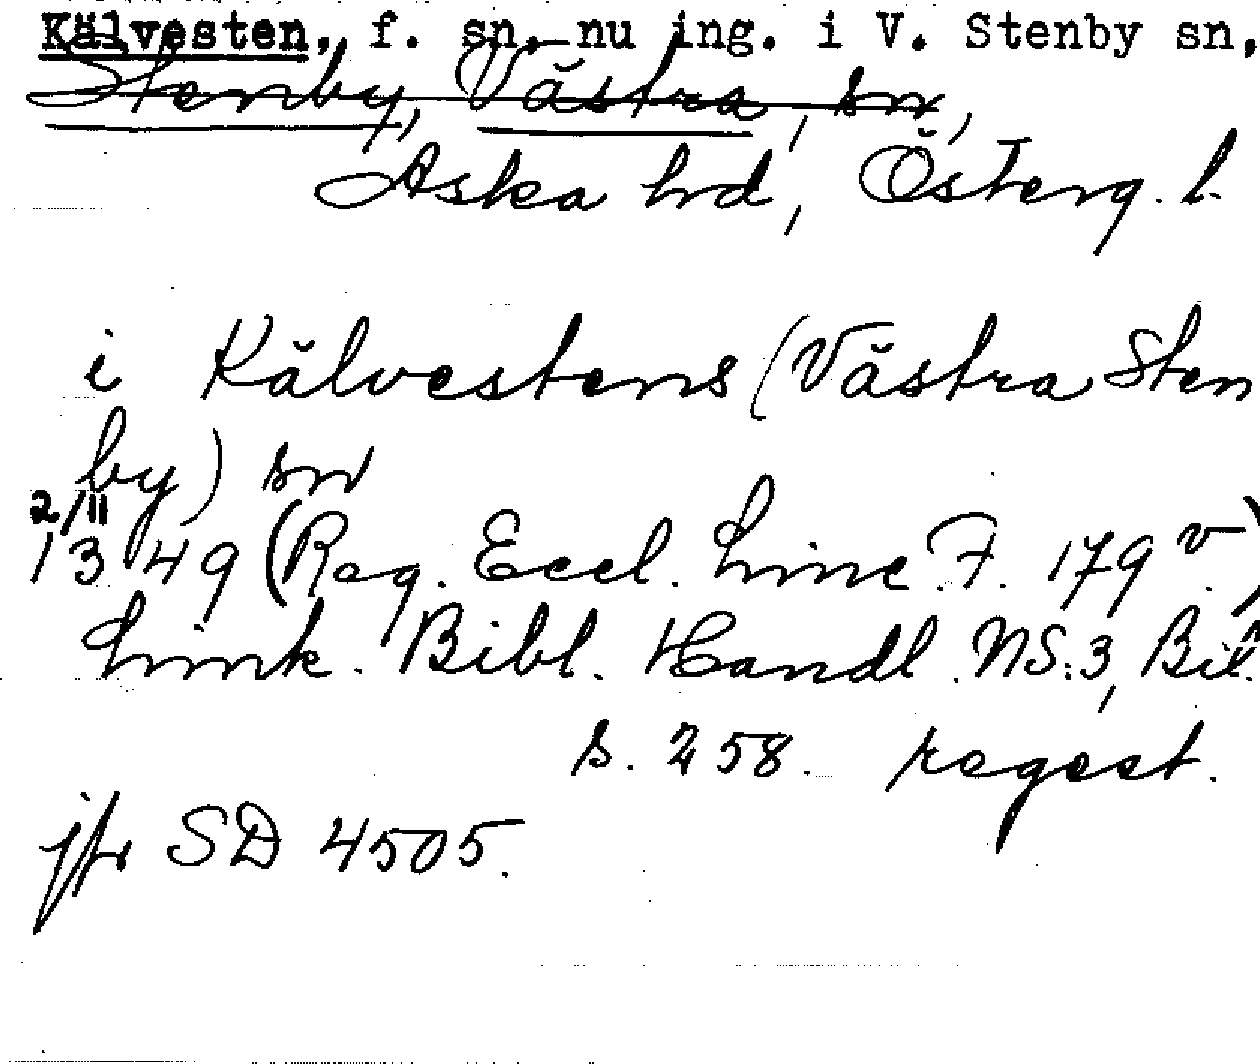 Kälvesten, f. sn, nu ing. i V. Stenby sn,
Stenby, Västra, sn,
Aska hd, Österg. l.
i Kälvestens (Västra Sten
by) sn
2/11
1349 (Reg. Eccl. Linc. F. 179 v.)
Link. Bibl. Handl. NS:3, Bil.
s. 258. regest.
jfr SD 4505.